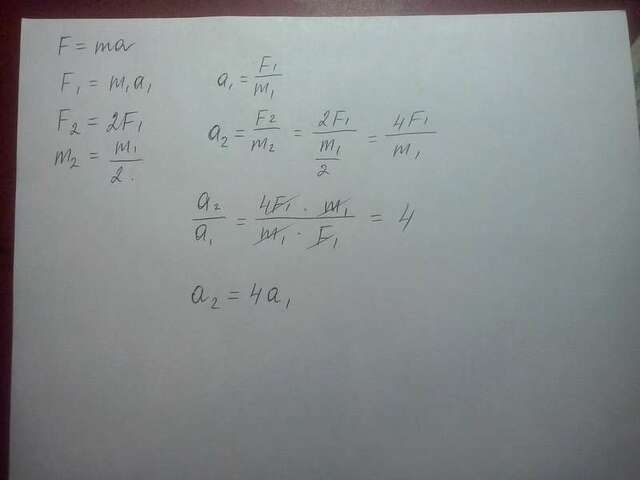 F = ma
F₁ = m₁a₁
a₁ = F₁/m₁
F₂ = 2F₁
m₂ = m₁/2.
a₂ = F₂/m₂ = 2F₁/(m₁/2) = 4F₁/m₁
a₂/a₁ = (4F₁ · m₁)/(m₁ · F₁) = 4
a₂ = 4a₁